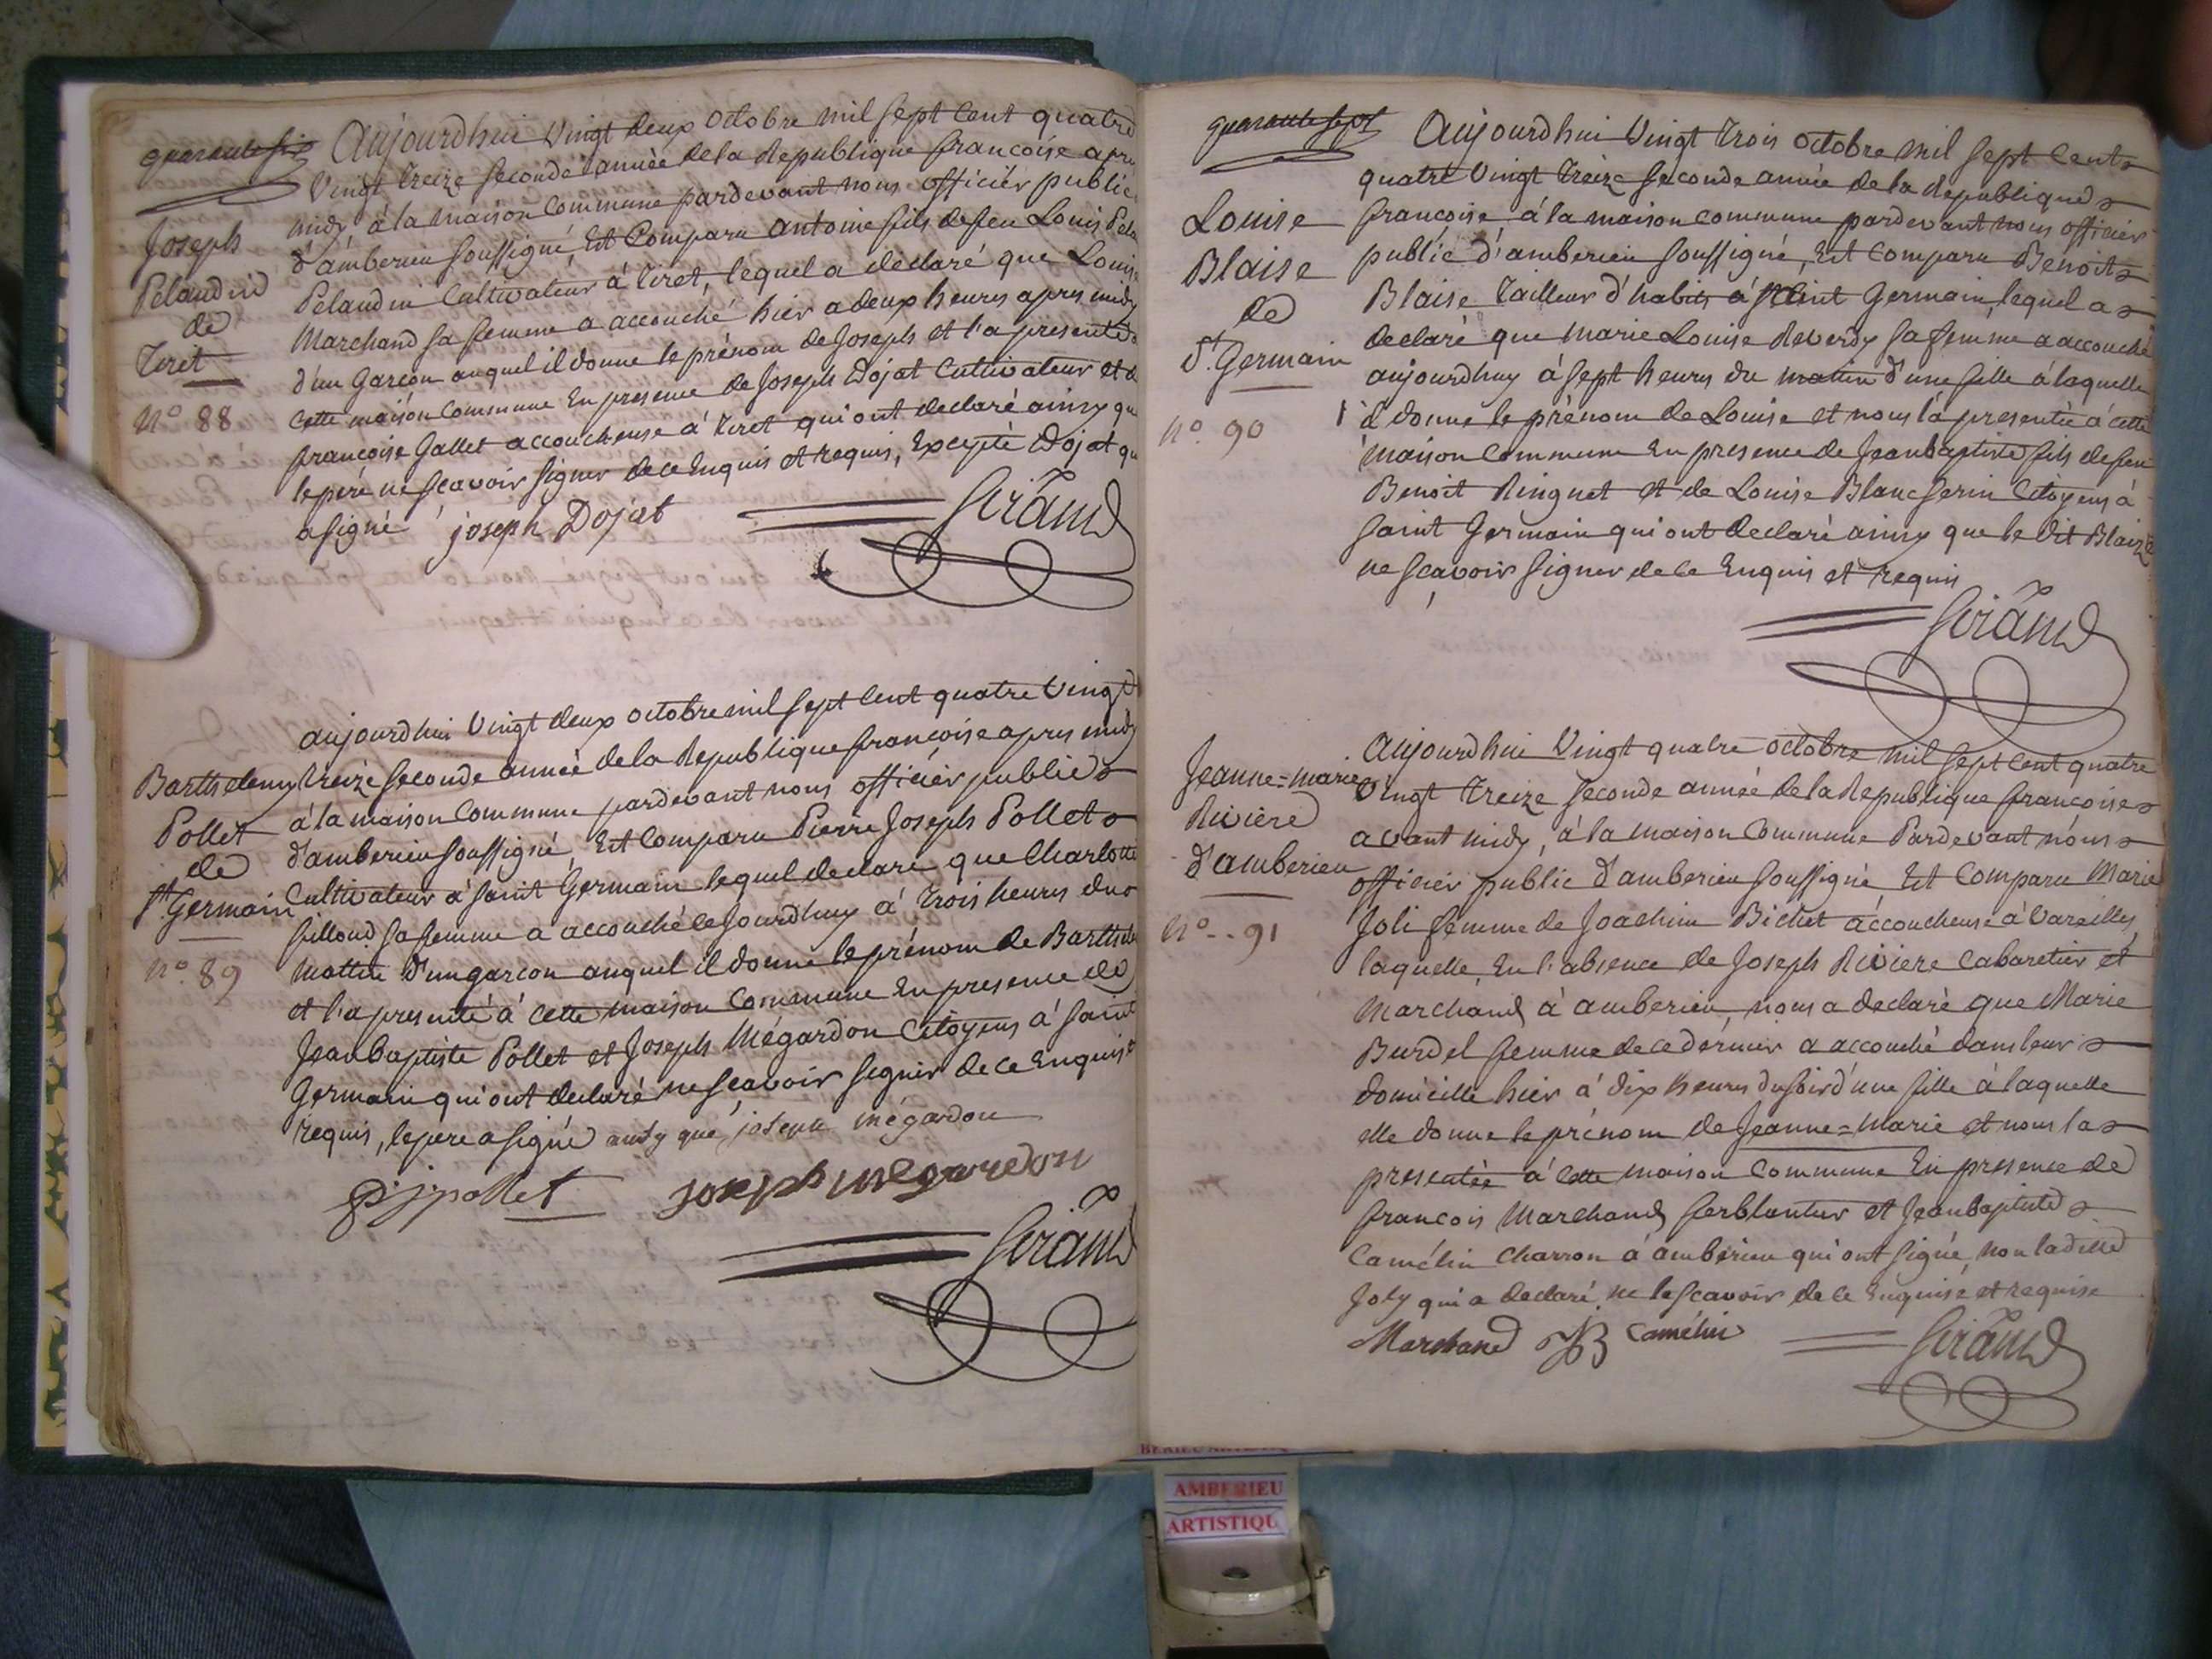 quarante six
Joseph
Pelandin
de
Tiret
N° 88
Aujourdhui Vingt deux octobre mil sept cent quatre
Vingt treize seconde année de la Republique françoise apres
midy à la maison commune pardevant nous officier public
d'amberieu soussigné, Est Comparu Antoine fils de feu Louis
Pelandin Cultivateur à Tiret, lequel a déclaré que Louise
Marchand sa femme a accouché hier a deux heures apres midy
d'un Garçon auquel il donne le prénom de Joseph et l'a presenté
cette maison commune En présence de Joseph Dojat Cultivateur et de
françoise Gallet accoucheuse à Tiret qui ont declaré ainsy que
le pere ne sçavoir signer de ce Enquis et requis, Excepté Dojat qui
a signé joseph Dojat
Giraud
Barthelemy
Pollet
de
St. Germain
N° 89
aujourdhui Vingt deux octobre mil sept cent quatre Vingt
treize seconde année de la Republique françoise apres midy
à la maison commune pardevant nous officier public
d'amberieu soussigné, Est Comparu Pierre Joseph Pollet
Cultivateur à saint Germain lequel declare que Charlotte
sillond sa femme a accouché cejourdhuy à Trois heures du
mattin d'un garcon auquel il donne le prénom de Barthele
et l'a presenté à cette maison Commune En presence de
Jean baptiste Pollet et Joseph Mégardon Citoyens à saint
Germain qui ont declaré ne sçavoir signer de ce Enquis
requis, le pere a signé ainsy que joseph mégardon
pjpollet joseph mégardon
Giraud
quarante sept
Louise
Blaise
de
St. Germain
N° 90
Aujourdhui Vingt trois octobre mil sept cent
quatre Vingt treize seconde année de la Republique
françoise à la maison commune pardevant nous officier
public d'amberieu soussigné, Est Comparu Benoit
Blaise Tailleur d'habits à saint Germain, lequel a
declaré que Marie Louise Reverdy sa femme a accouché
aujourdhuy à sept heures du matin d'une fille à laquelle
il donne le prénom de Louise et nous l'a presentée à cette
maison commune En presence de Jean baptiste fils de feu
Benoit Ringuet et de Louise Blanc serin Citoyens à
saint Germain qui ont declaré ainsy que le dit Blaize
ne sçavoir signer de ce Enquis et requis
Giraud
Jeanne=marie
Riviere
d'amberieu
N° 91
Aujourdhui Vingt quatre octobre mil sept cent quatre
Vingt treize seconde année de la Republique françoise
avant midy, à la maison Commune Pardevant nous
officier public d'amberieu soussigné Est Comparu Marie
Joli femme de Joachim Bichet accoucheuse à Vareilles,
laquelle, En l'absence de Joseph Riviere Cabaretier et
Marchand à amberieu, nous a declaré que Marie
Burdel femme de ce dernier a accouché dans leur
domicille hier à dix heures du soir d'une fille à laquelle
elle donne le prénom de Jeanne=Marie et nous la
presentée à cette maison Commune En presence de
françois Marchand ferblantier et Jean baptiste
Camélin Charron à amberieu qui ont signé, non la ditte
Joly qui a declaré ne le scavoir de ce Enquise et requise
Marchand JB Camélin
Giraud
AMBERIEU
ARTISTIQU